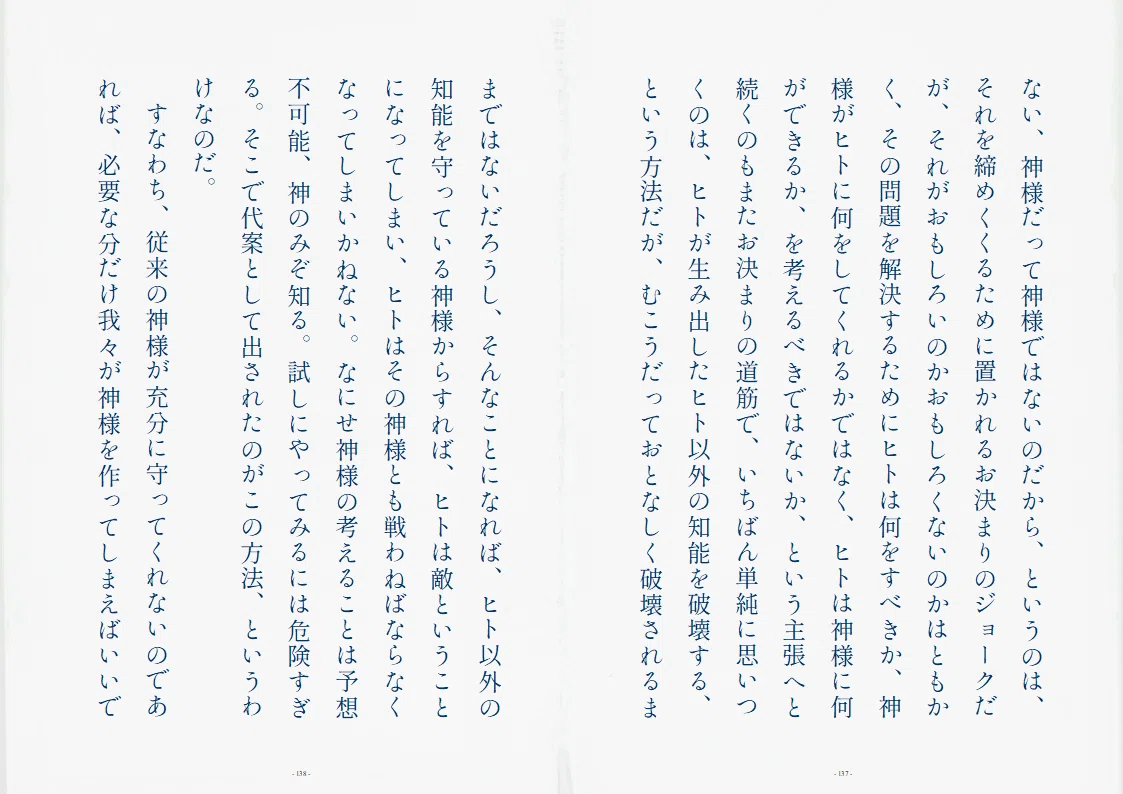 ない、神様だって神様ではないのだから、というのは、
それを締めくくるために置かれるお決まりのジョークだ
が、それがおもしろいのかおもしろくないのかはともか
く、その問題を解決するためにヒトは何をすべきか、神
様がヒトに何をしてくれるかではなく、ヒトは神様に何
ができるか、を考えるべきではないか、という主張へと
続くのもまたお決まりの道筋で、いちばん単純に思いつ
くのは、ヒトが生み出したヒト以外の知能を破壊する、
という方法だが、むこうだっておとなしく破壊されるま
- 137 -
まではないだろうし、そんなことになれば、ヒト以外の
知能を守っている神様からすれば、ヒトは敵ということ
になってしまい、ヒトはその神様とも戦わねばならなく
なってしまいかねない。なにせ神様の考えることは予想
不可能、神のみぞ知る。試しにやってみるには危険すぎ
る。そこで代案として出されたのがこの方法、というわ
けなのだ。
すなわち、従来の神様が充分に守ってくれないのであ
れば、必要な分だけ我々が神様を作ってしまえばいいで
- 138 -